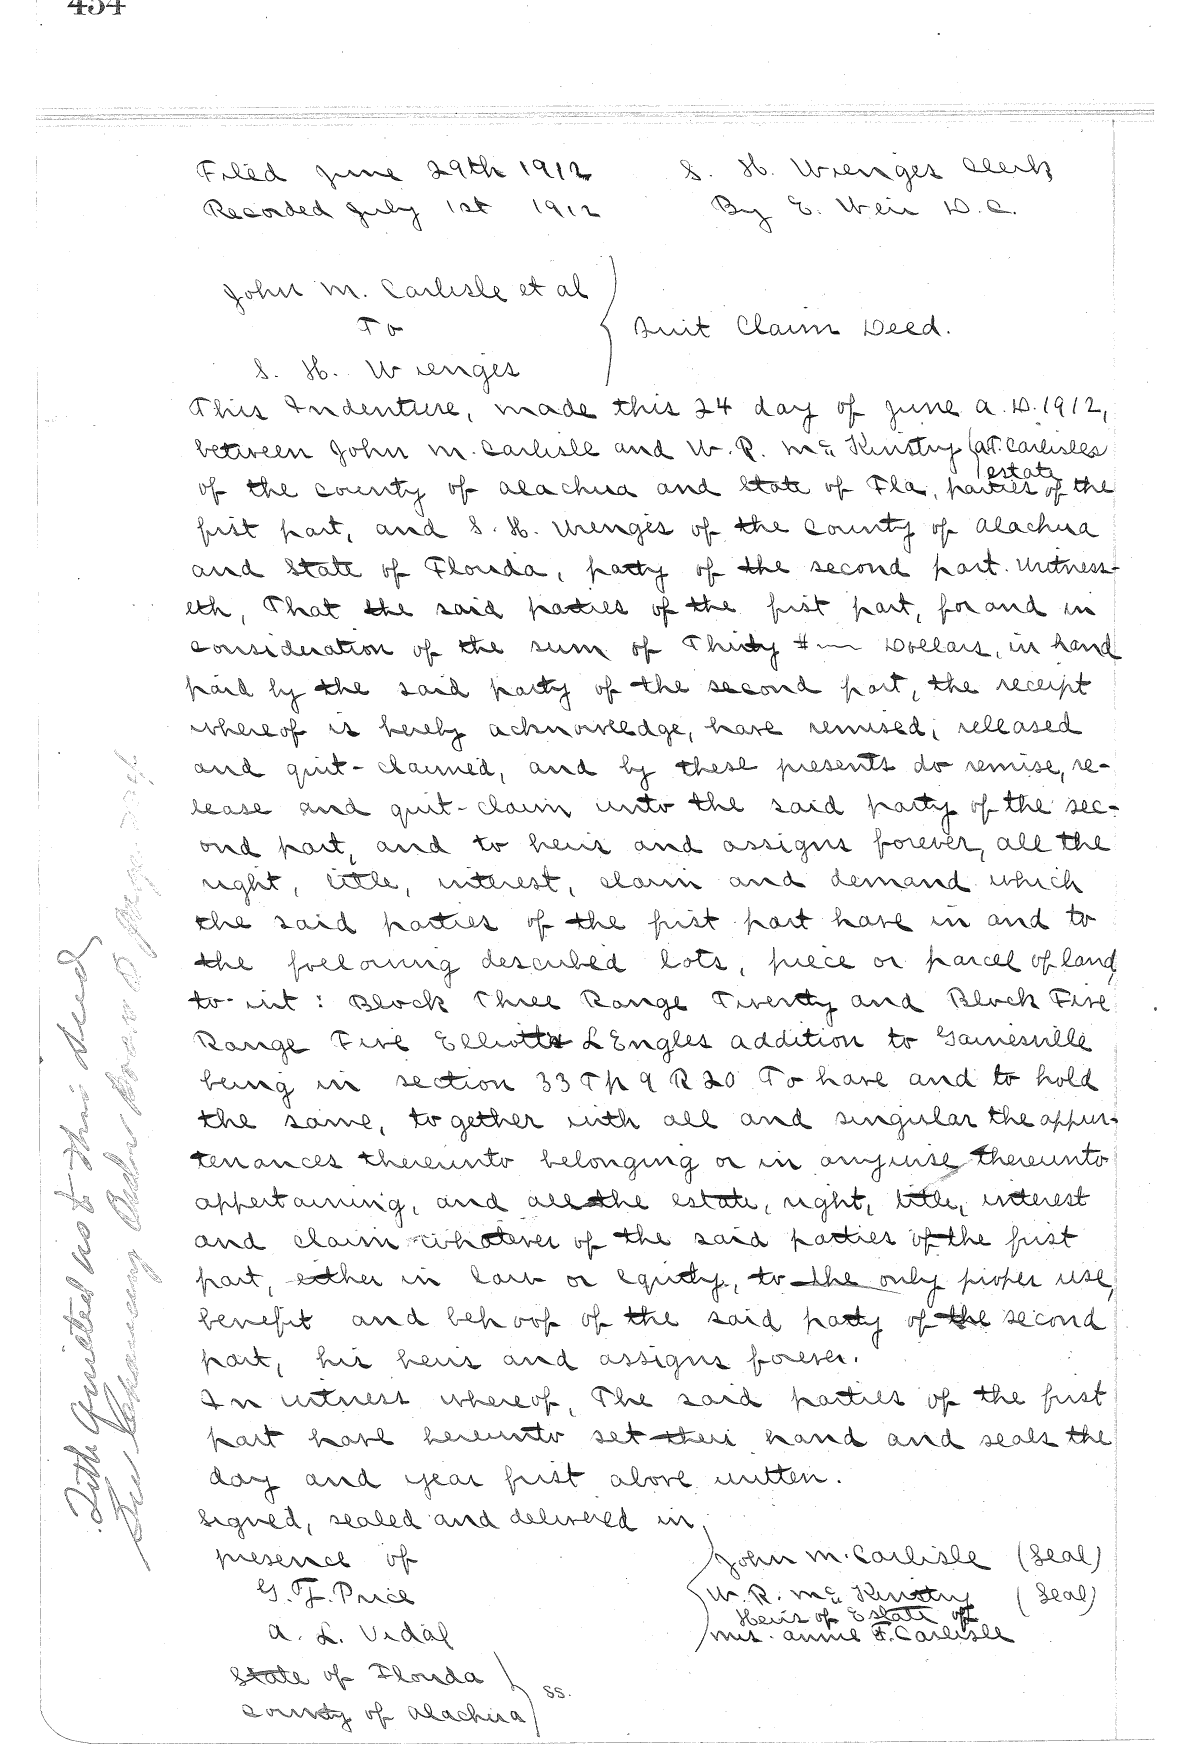 454
Filed June 29th 1912 S. H. Wienges Clerk
Recorded July 1st 1912 By E. Weir D.C.
John M. Carlisle et al
To
S. H. Wienges
Quit Claim Deed.
This Indenture, made this 24 day of June A.D. 1912,
between John M. Carlisle and W. R. McKinstry (A.F. Carlisles
estate
of the county of Alachua and State of Fla, parties of the
first part, and S. H. Wienges of the county of Alachua
and State of Florida, party of the second part. Witness-
eth, That the said parties of the first part, for and in
consideration of the sum of Thirty # — Dollars, in hand
paid by the said party of the second part, the receipt
whereof is hereby acknowledge, have remised, released
and quit-claimed, and by these presents do remise, re-
lease and quit-claim unto the said party of the sec-
ond part, and to heirs and assigns forever, all the
right, title, interest, claim and demand which
the said parties of the first part have in and to
the following described lots, piece or parcel of land,
to-wit: Block Three Range Twenty and Block Five
Range Five Elliotts L Engles addition to Gainesville
being in section 33 Tp 9 R 20 To have and to hold
the same, together with all and singular the appur-
tenances thereunto belonging or in anywise thereunto
appertaining, and all the estate, right, title, interest
and claim whatever of the said parties of the first
part, either in law or equity, to the only proper use,
benefit and behoof of the said party of the second
part, his heirs and assigns forever.
In witness whereof, The said parties of the first
part have hereunto set their hand and seals the
day and year first above written.
Signed, sealed and delivered in
presence of
John M. Carlisle (Seal)
G. F. Price
W. R. McKinstry (Seal)
Heirs of Estate of
A. L. Vidal
Mrs. Annie F. Carlisle
State of Florida
County of Alachua ss.
Title Quieted as to this deed
See Chancery Order Book Page